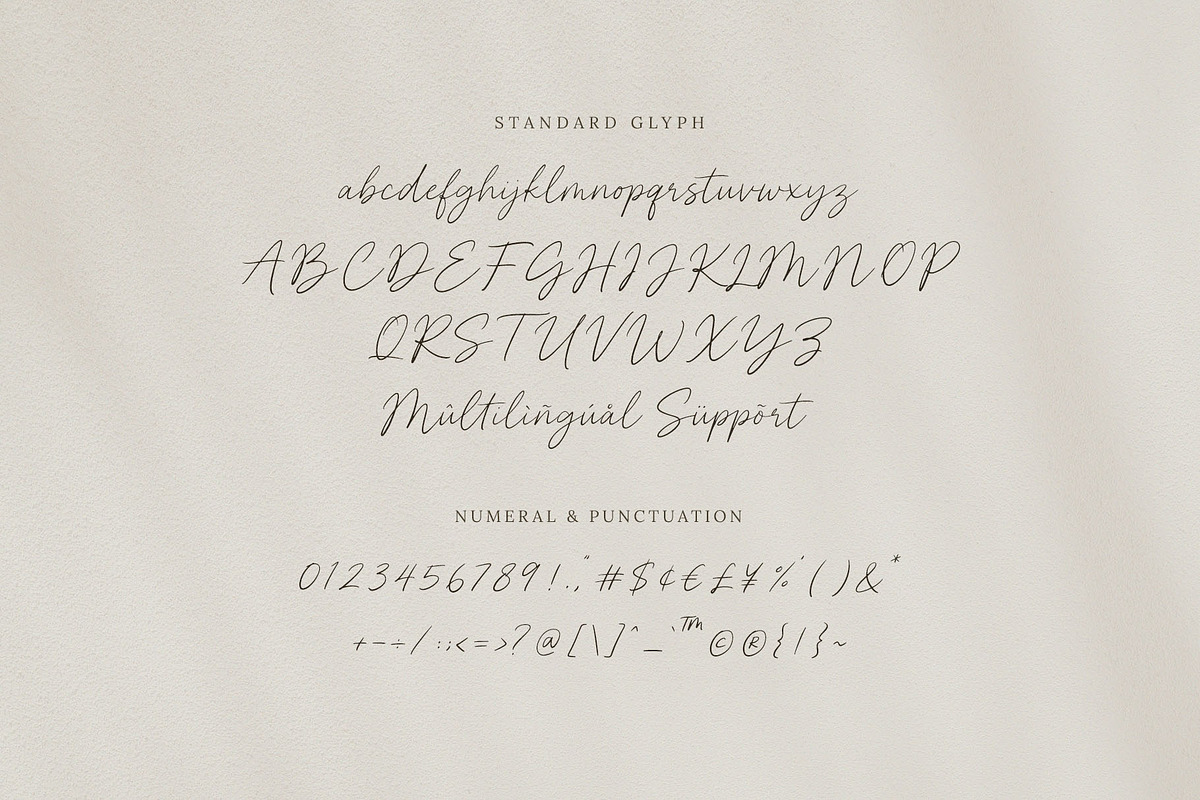 STANDARD GLYPH
abcdefghijklmnopqrstuvwxyz
ABCDEFGHIJKLMNOP
QRSTUVWXYZ
Mûltilìñgúål Süppõrt
NUMERAL & PUNCTUATION
0123456789!.,"#$¢€£¥%'()&*
+-÷/:;<=>?@[\]^_`™©®{|}~